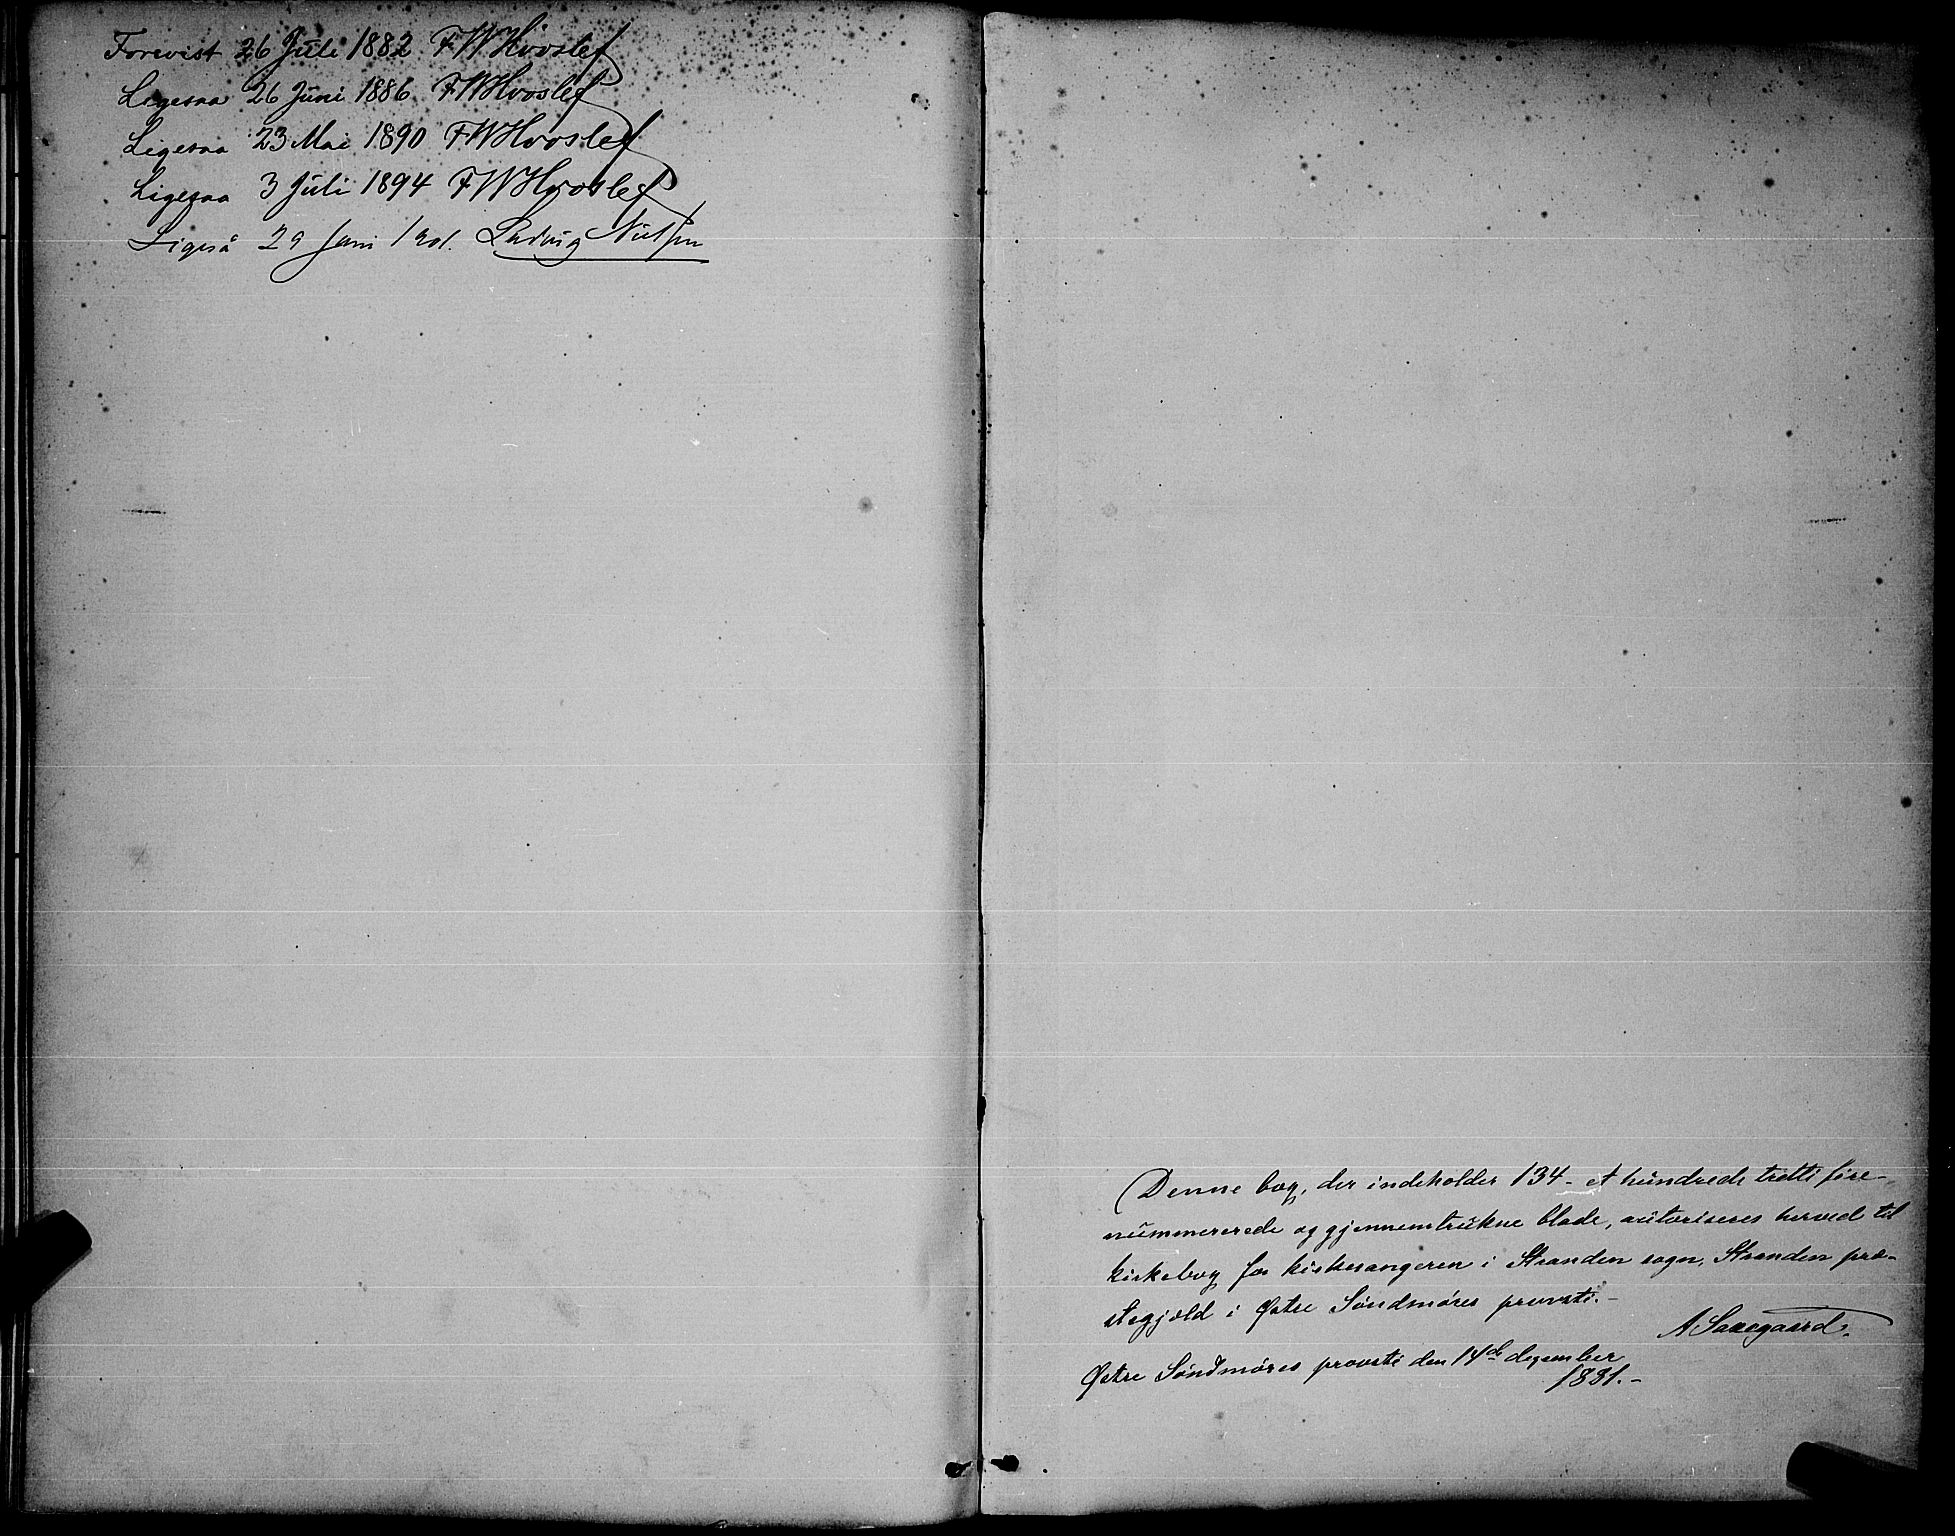 Forevist 26 Juli 1882 FWHvoslef
Ligesaa 26 Juni 1886 FWHvoslef
Ligesaa 23 Mai 1890 FWHvoslef
Ligesaa 3 Juli 1894 FWHvoslef
Ligeså 29 Juni 1901. Ludvig Nielsen
Denne bog, der indeholder 134 - et hundrede tretti fire -
nummererede og gjennemtrukne blade, autoriseres herved til
kirkebog for kirkesangeren i Stranden sogn, Stranden præ-
stegjæld i Østre Søndmøres provsti. -
A Saxegaard.
Østre Søndmøres provsti den 14de dezember
1881. -